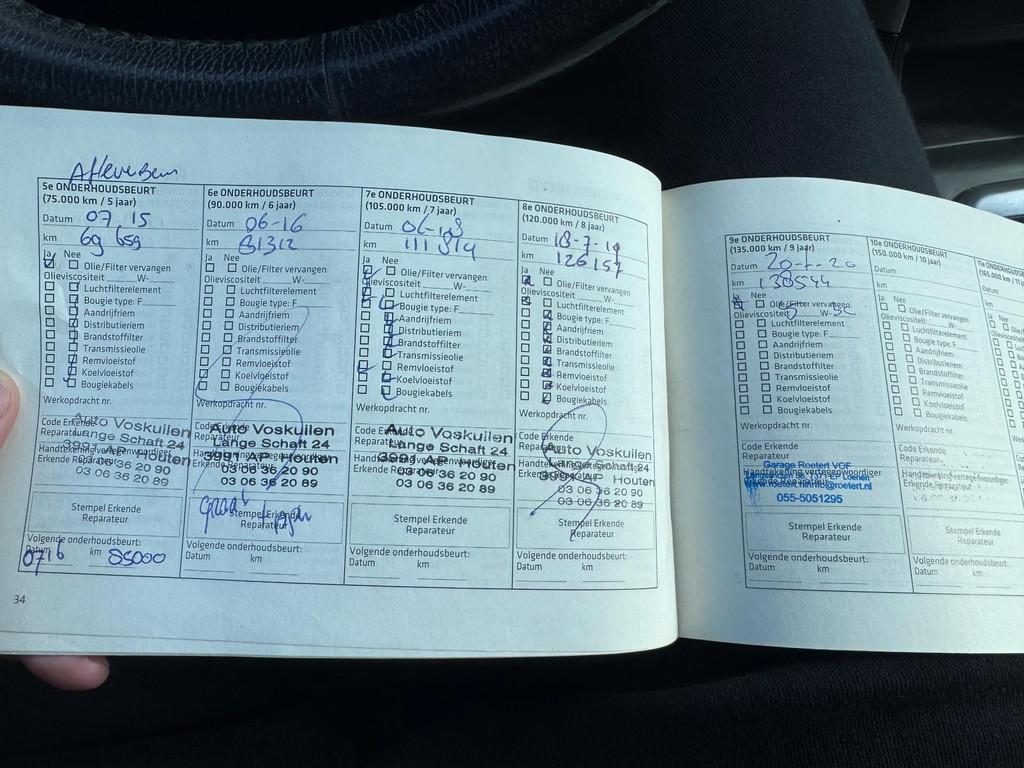 Afleverbeurt
5e ONDERHOUDSBEURT
(75.000 km / 5 jaar)
Datum 07 15
km 69 659
Ja Nee
Olie/Filter vervangen
Olieviscositeit W-
Luchtfilterelement
Bougie type: F
Aandrijfriem
Distributieriem
Brandstoffilter
Transmissieolie
Remvloeistof
Koelvloeistof
Bougiekabels
Werkopdracht nr.
Code Erkende
Reparateur
Auto Voskuilen
Lange Schaft 24
3991 AP Houten
03 06 36 20 90
03 06 36 20 89
Handtekening vertegenwoordiger
Erkende Reparateur
Stempel Erkende
Reparateur
Volgende onderhoudsbeurt:
Datum km
07 16 85000
34
6e ONDERHOUDSBEURT
(90.000 km / 6 jaar)
Datum 06-16
km 81312
Ja Nee
Olie/Filter vervangen
Olieviscositeit W-
Luchtfilterelement
Bougie type: F
Aandrijfriem
Distributieriem
Brandstoffilter
Transmissieolie
Remvloeistof
Koelvloeistof
Bougiekabels
Werkopdracht nr.
Code Erkende
Reparateur
Auto Voskuilen
Lange Schaft 24
3991 AP Houten
03 06 36 20 90
03 06 36 20 89
Handtekening vertegenwoordiger
Erkende Reparateur
Stempel Erkende
Reparateur
Volgende onderhoudsbeurt:
Datum km
7e ONDERHOUDSBEURT
(105.000 km / 7 jaar)
Datum
km 111 814
Ja Nee
Olie/Filter vervangen
Olieviscositeit W-
Luchtfilterelement
Bougie type: F
Aandrijfriem
Distributieriem
Brandstoffilter
Transmissieolie
Remvloeistof
Koelvloeistof
Bougiekabels
Werkopdracht nr.
Code Erkende
Reparateur
Auto Voskuilen
Lange Schaft 24
3991 AP Houten
03 06 36 20 90
03 06 36 20 89
Handtekening vertegenwoordiger
Erkende Reparateur
Stempel Erkende
Reparateur
Volgende onderhoudsbeurt:
Datum km
8e ONDERHOUDSBEURT
(120.000 km / 8 jaar)
Datum 18-7-19
km 126 157
Ja Nee
Olie/Filter vervangen
Olieviscositeit W-
Luchtfilterelement
Bougie type: F
Aandrijfriem
Distributieriem
Brandstoffilter
Transmissieolie
Remvloeistof
Koelvloeistof
Bougiekabels
Werkopdracht nr.
Code Erkende
Reparateur
Auto Voskuilen
Lange Schaft 24
3991 AP Houten
03 06 36 20 90
03 06 36 20 89
Handtekening vertegenwoordiger
Erkende Reparateur
Stempel Erkende
Reparateur
Volgende onderhoudsbeurt:
Datum km
9e ONDERHOUDSBEURT
(135.000 km / 9 jaar)
Datum 20-7-20
km 130544
Ja Nee
Olie/Filter vervangen
Olieviscositeit 5 W-30
Luchtfilterelement
Bougie type: F
Aandrijfriem
Distributieriem
Brandstoffilter
Transmissieolie
Remvloeistof
Koelvloeistof
Bougiekabels
Werkopdracht nr.
Code Erkende
Reparateur
Garage Roetert VOF
Loenen
055-5051295
Handtekening vertegenwoordiger
Erkende Reparateur
Stempel Erkende
Reparateur
Volgende onderhoudsbeurt:
Datum km
10e ONDERHOUDSBEURT
(150.000 km / 10 jaar)
Datum
km
Ja Nee
Olie/Filter vervangen
Olieviscositeit W-
Luchtfilterelement
Bougie type: F
Aandrijfriem
Distributieriem
Brandstoffilter
Transmissieolie
Remvloeistof
Koelvloeistof
Bougiekabels
Werkopdracht nr.
Code Erkende
Reparateur
Handtekening vertegenwoordiger
Erkende Reparateur
Stempel Erkende
Reparateur
Volgende onderhoudsbeurt:
Datum km